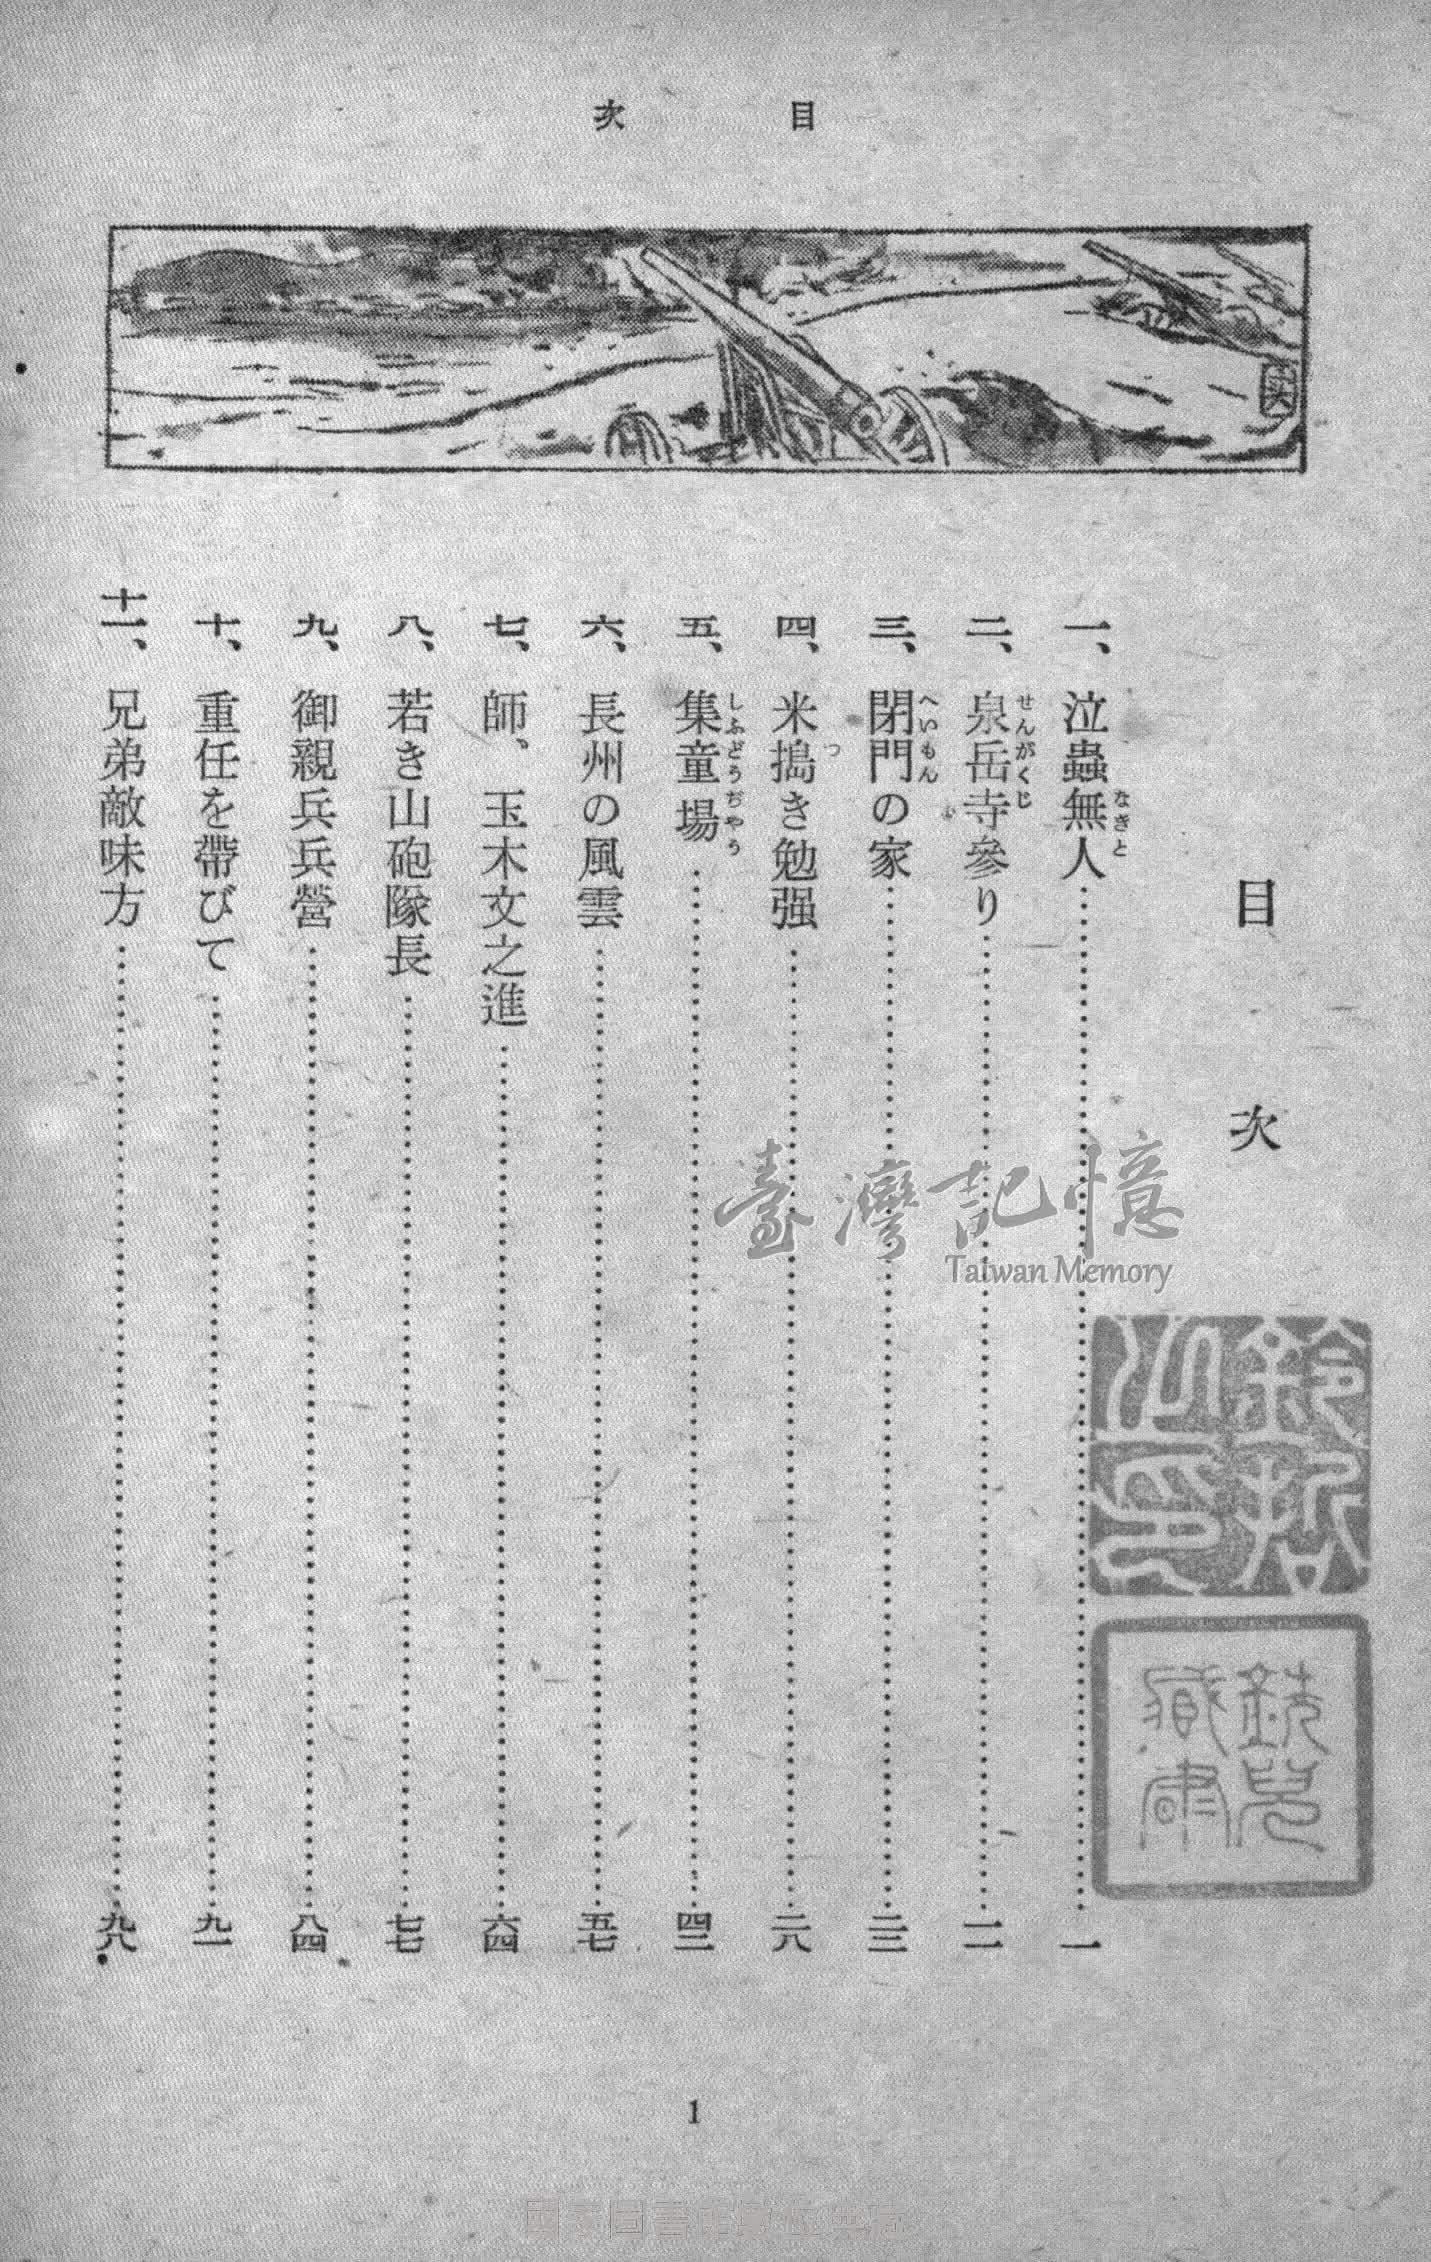 目次
目次
一、泣蟲無人……一
なきと
二、泉岳寺參り……一一
せんがくじ
三、閉門の家……二三
へいもん
四、米搗き勉强……二八
つ
五、集童場……四二
しふどうぢやう
六、長州の風雲……五七
七、師、玉木文之進……六四
八、若き山砲隊長……七七
九、御親兵兵營……八四
十、重任を帶びて……九一
十一、兄弟敵味方……九八
臺灣記憶
Taiwan Memory
1